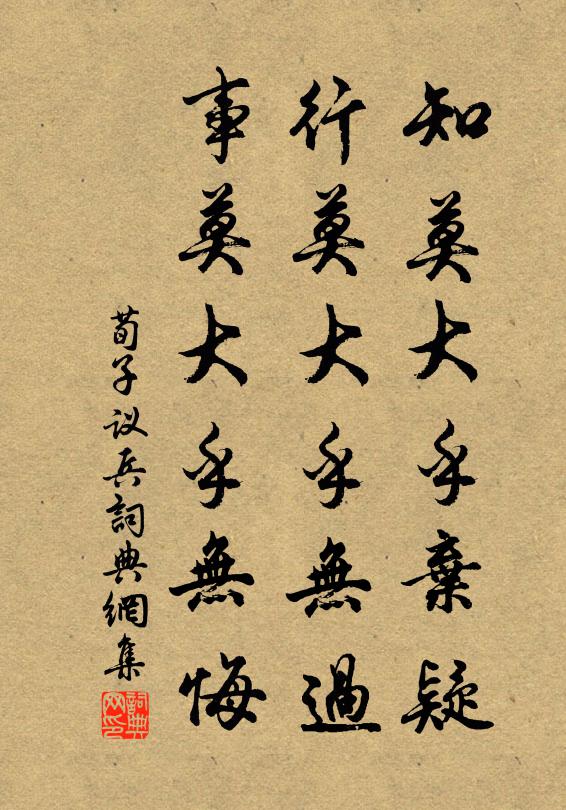 知莫大乎棄疑
行莫大乎無過
事莫大乎無悔
荀子议兵詞典網集
詞典网印